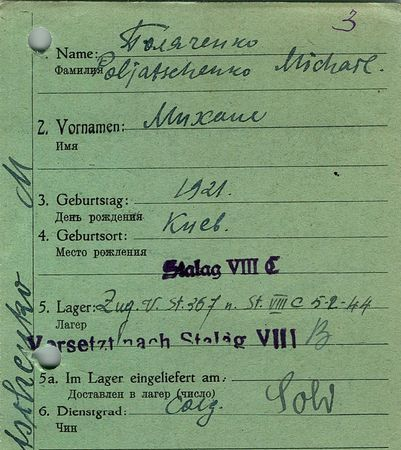 3
Поляченко
1. Name: Poljatschenko Michael.
Фамилия
2. Vornamen: Михаил
Имя
3. Geburtstag: 1921.
День рождения
4. Geburtsort: Киев.
Место рождения
Stalag VIII C
5. Lager: Zug. V. St. 367 n. St. VIII C 5-2-44
Лагер
Versetzt nach Stalag VIII B
5a. Im Lager eingeliefert am:
Доставлен в лагер (число)
6. Dienstgrad: Sold
Чин